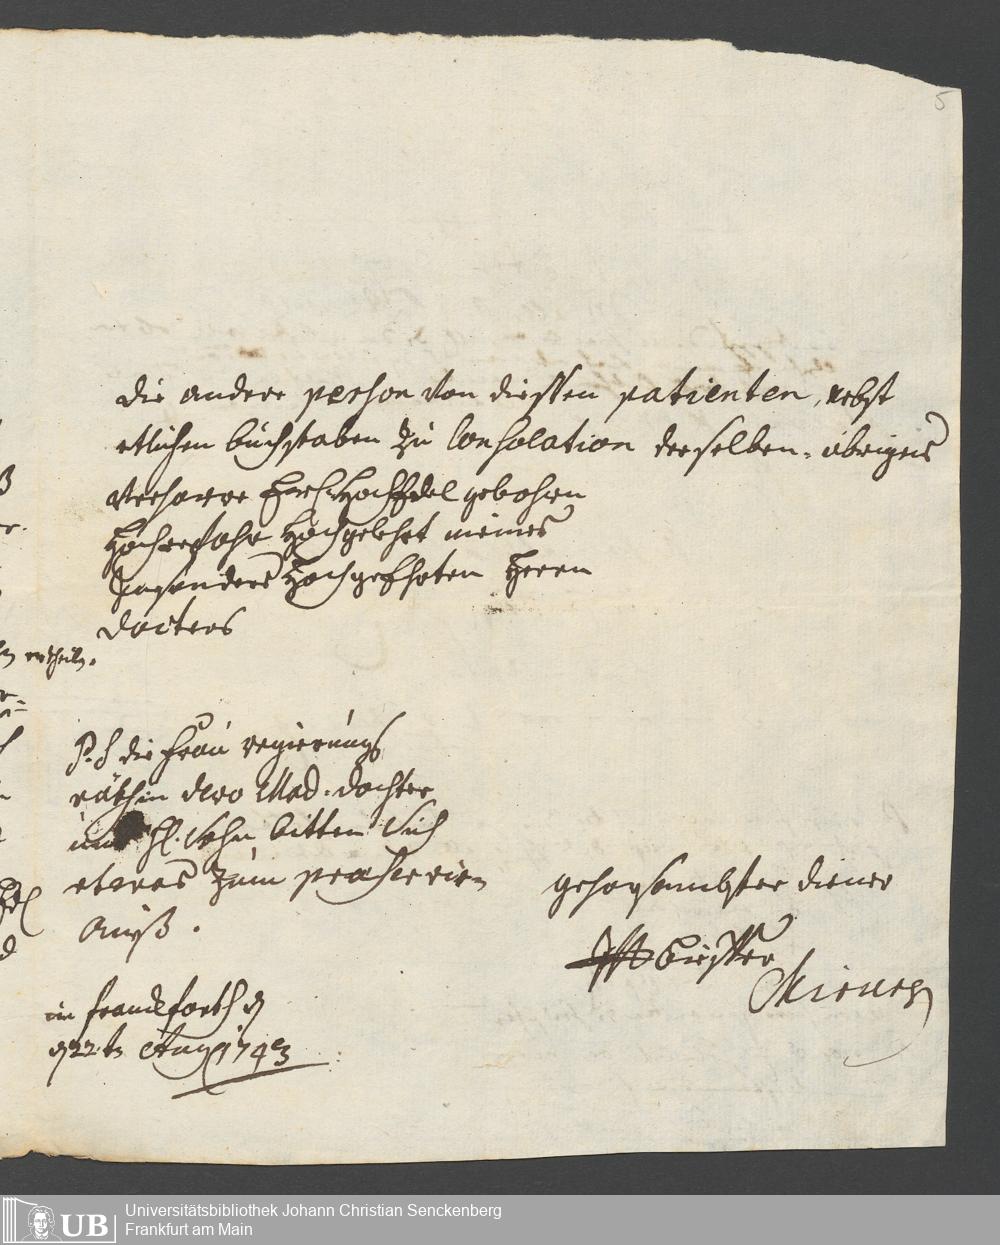 5
die andere person von diessen patienten, nebst
etlichen buchstaben zu Consolation derselben. übrigens
verharre HochEdel gebohrn
Hocherfahr Hochgelehrt meines
Insonders HochgeEhrten Herrn
docters
P.S die frau regierungs
räthin dero Mad. dochter
und H. Sohn bitten sich
etwas zum praeservir
auß.
gehorsambster diener
in franckforth d
22t Aug 1743
UB
Universitätsbibliothek Johann Christian Senckenberg
Frankfurt am Main